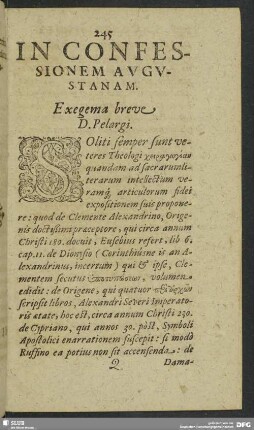 245
IN CONFES-
SIONEM AVGV-
STANAM.
Exegema breve
D. Pelargi.
SOliti semper sunt ve-
teres Theologi
quandam ad sacrarum li-
terarum intellectum ve-
ramq́ articulorum fidei
expositionem suis propone-
re: quod de Clemente Alexandrino, Orige-
nis doctissimi præceptore, qui circa annum
Christi 180. docuit, Eusebius refert. lib 6.
cap. 11. de Dionysio (Corinthiusne is an A-
lexandrinus, incertum) qui & ipse, Cle-
mentem secutus ὑποτυπώσεως, volumen
edidit: de Origene, qui quatuor
scripsit libros, Alexandri Severi Imperato-
ris ætate, hoc est, circa annum Christi 230.
de Cipriano, qui annos 30. pòst, Symboli
Apostolici enarrationem suscepit: si modò
Ruffino ea potius non sit accensenda: de
Q Dama-
SLUB
DFG